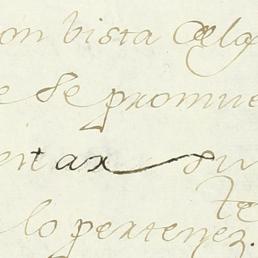 on vista
e se promue
entax su
te
lo pertenez.